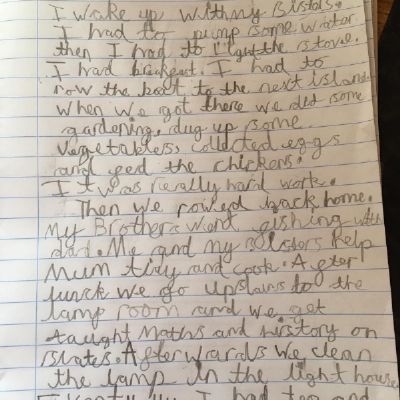 I wake up with my sistors.
I had to pump some water
then I had to light the stove.
I had breakfast. I had to
row the boat to the next island
when we got there we did some
gardening, dug up some
vegetables, collected eggs
and feed the chickens.
It was really hard work.
Then we rowed back home.
My Brothers want fishing with
dad. Me and my Sisters help
mum tidy and cook. After
lunch we go upstairs to the
lamp room and we get
taught maths and history on
slates. Afterwards we clean
the lamp in the light house
I had tea and